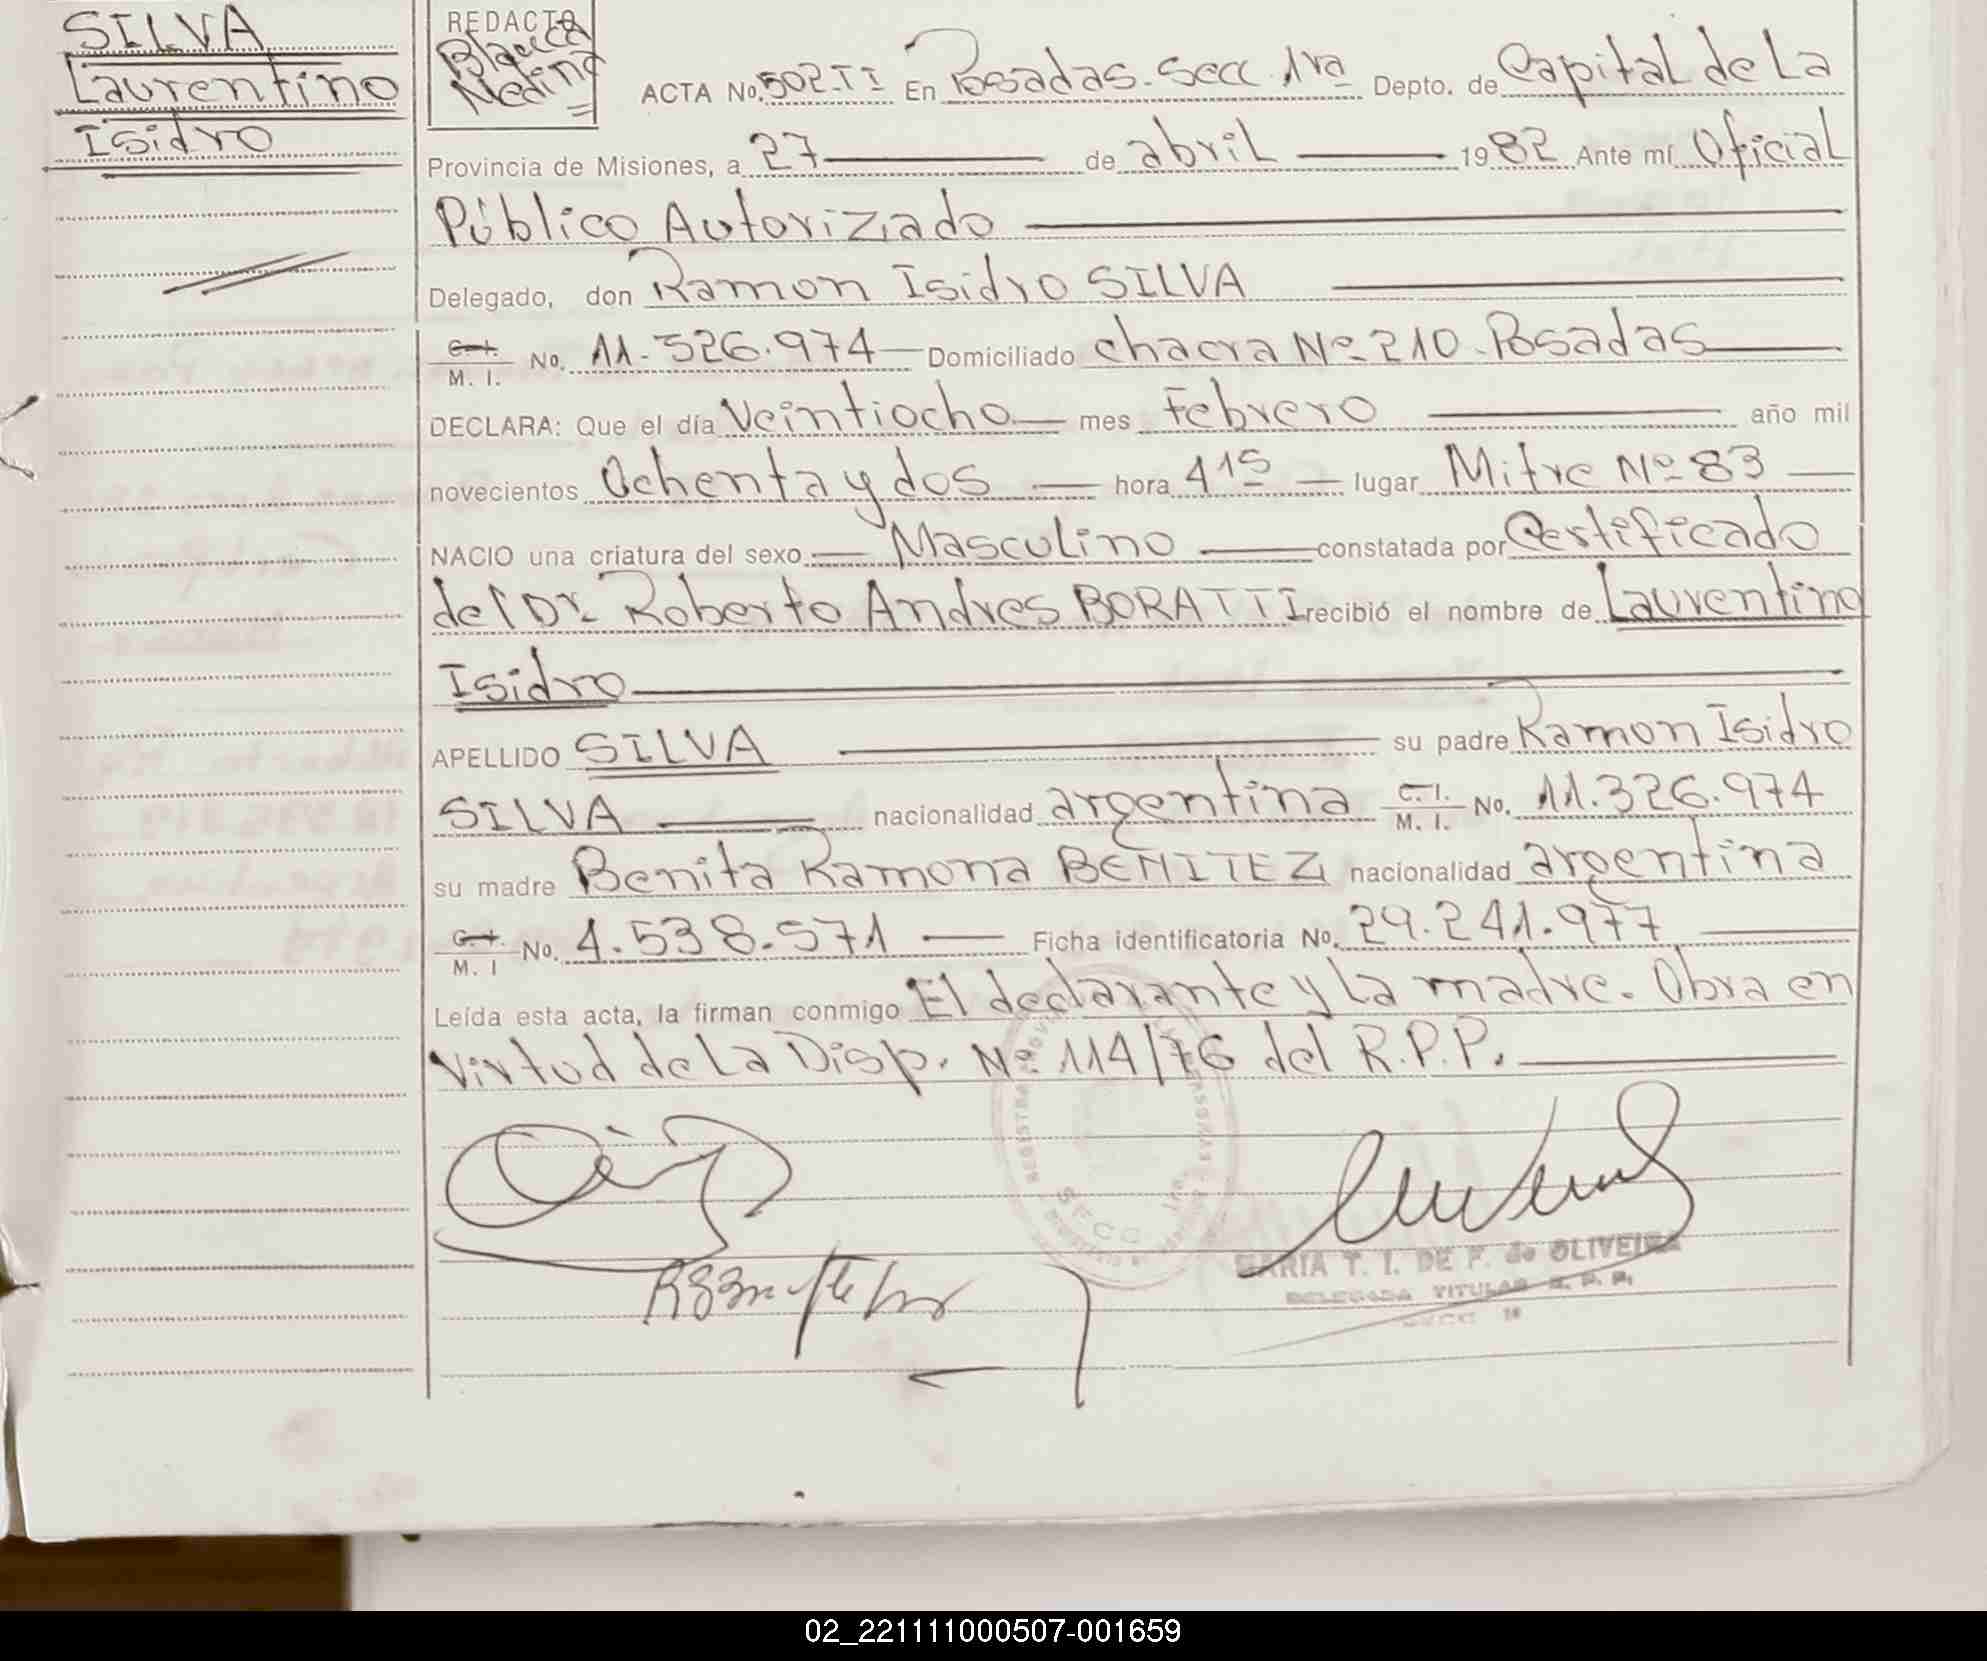 SILVA
Laurentino
Isidro
REDACTO
Blanca
Medina
ACTA No. 502-TI En Posadas-Secc. 1ra Depto. de Capital de La
Provincia de Misiones, a 27 de abril 1982 Ante mí Oficial
Público Autorizado
Delegado, don Ramon Isidro SILVA
C. I. M. I. No. 11.326.974 Domiciliado chacra Nº 210-Posadas
DECLARA: Que el día Veintiocho mes Febrero año mil
novecientos Ochenta y dos hora 4 15 lugar Mitre Nº 83
NACIO una criatura del sexo Masculino constatada por Certificado
del Dr. Roberto Andres BORATTI recibió el nombre de Laurentino
Isidro
APELLIDO SILVA su padre Ramon Isidro
SILVA nacionalidad argentina C. I. M. I. No. 11.326.974
su madre Benita Ramona BENITEZ nacionalidad argentina
C. I. M. I No. 4.538.571 Ficha identificatoria No. 29.241.977
Leída esta acta, la firman conmigo El declarante y la madre. Obra en
virtud de la Disp. Nº 114/76 del R.P.P.
SECC. 1ra
MARIA T. I. DE P. de OLIVEIRA
DELEGADA TITULAR R. P. P.
SECC. 1ª
02_221111000507-001659